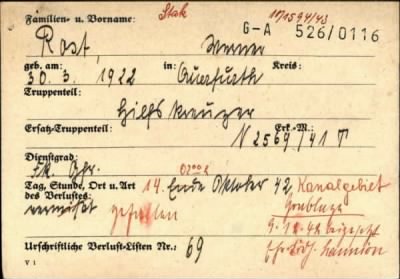 Familien- u. Vorname: Stak 10/1594/43
G-A 526/0116
Rost, Werner
geb. am: in: Kreis:
30. 3. 1922 Querfurth
Truppenteil:
Hilfskreuzer
Ersatz-Truppenteil: Erk.-M.:
N 2569/41 T
Dienstgrad:
Fk. Gfr.
Tag, Stunde, Ort u. Art 14. Ende Oktober 42, Kanalgebiet
des Verlustes:
vermißt gefallen
9.12.42 beigesetzt
Lannion
Urschriftliche Verlust-Listen Nr.: 69
V 1